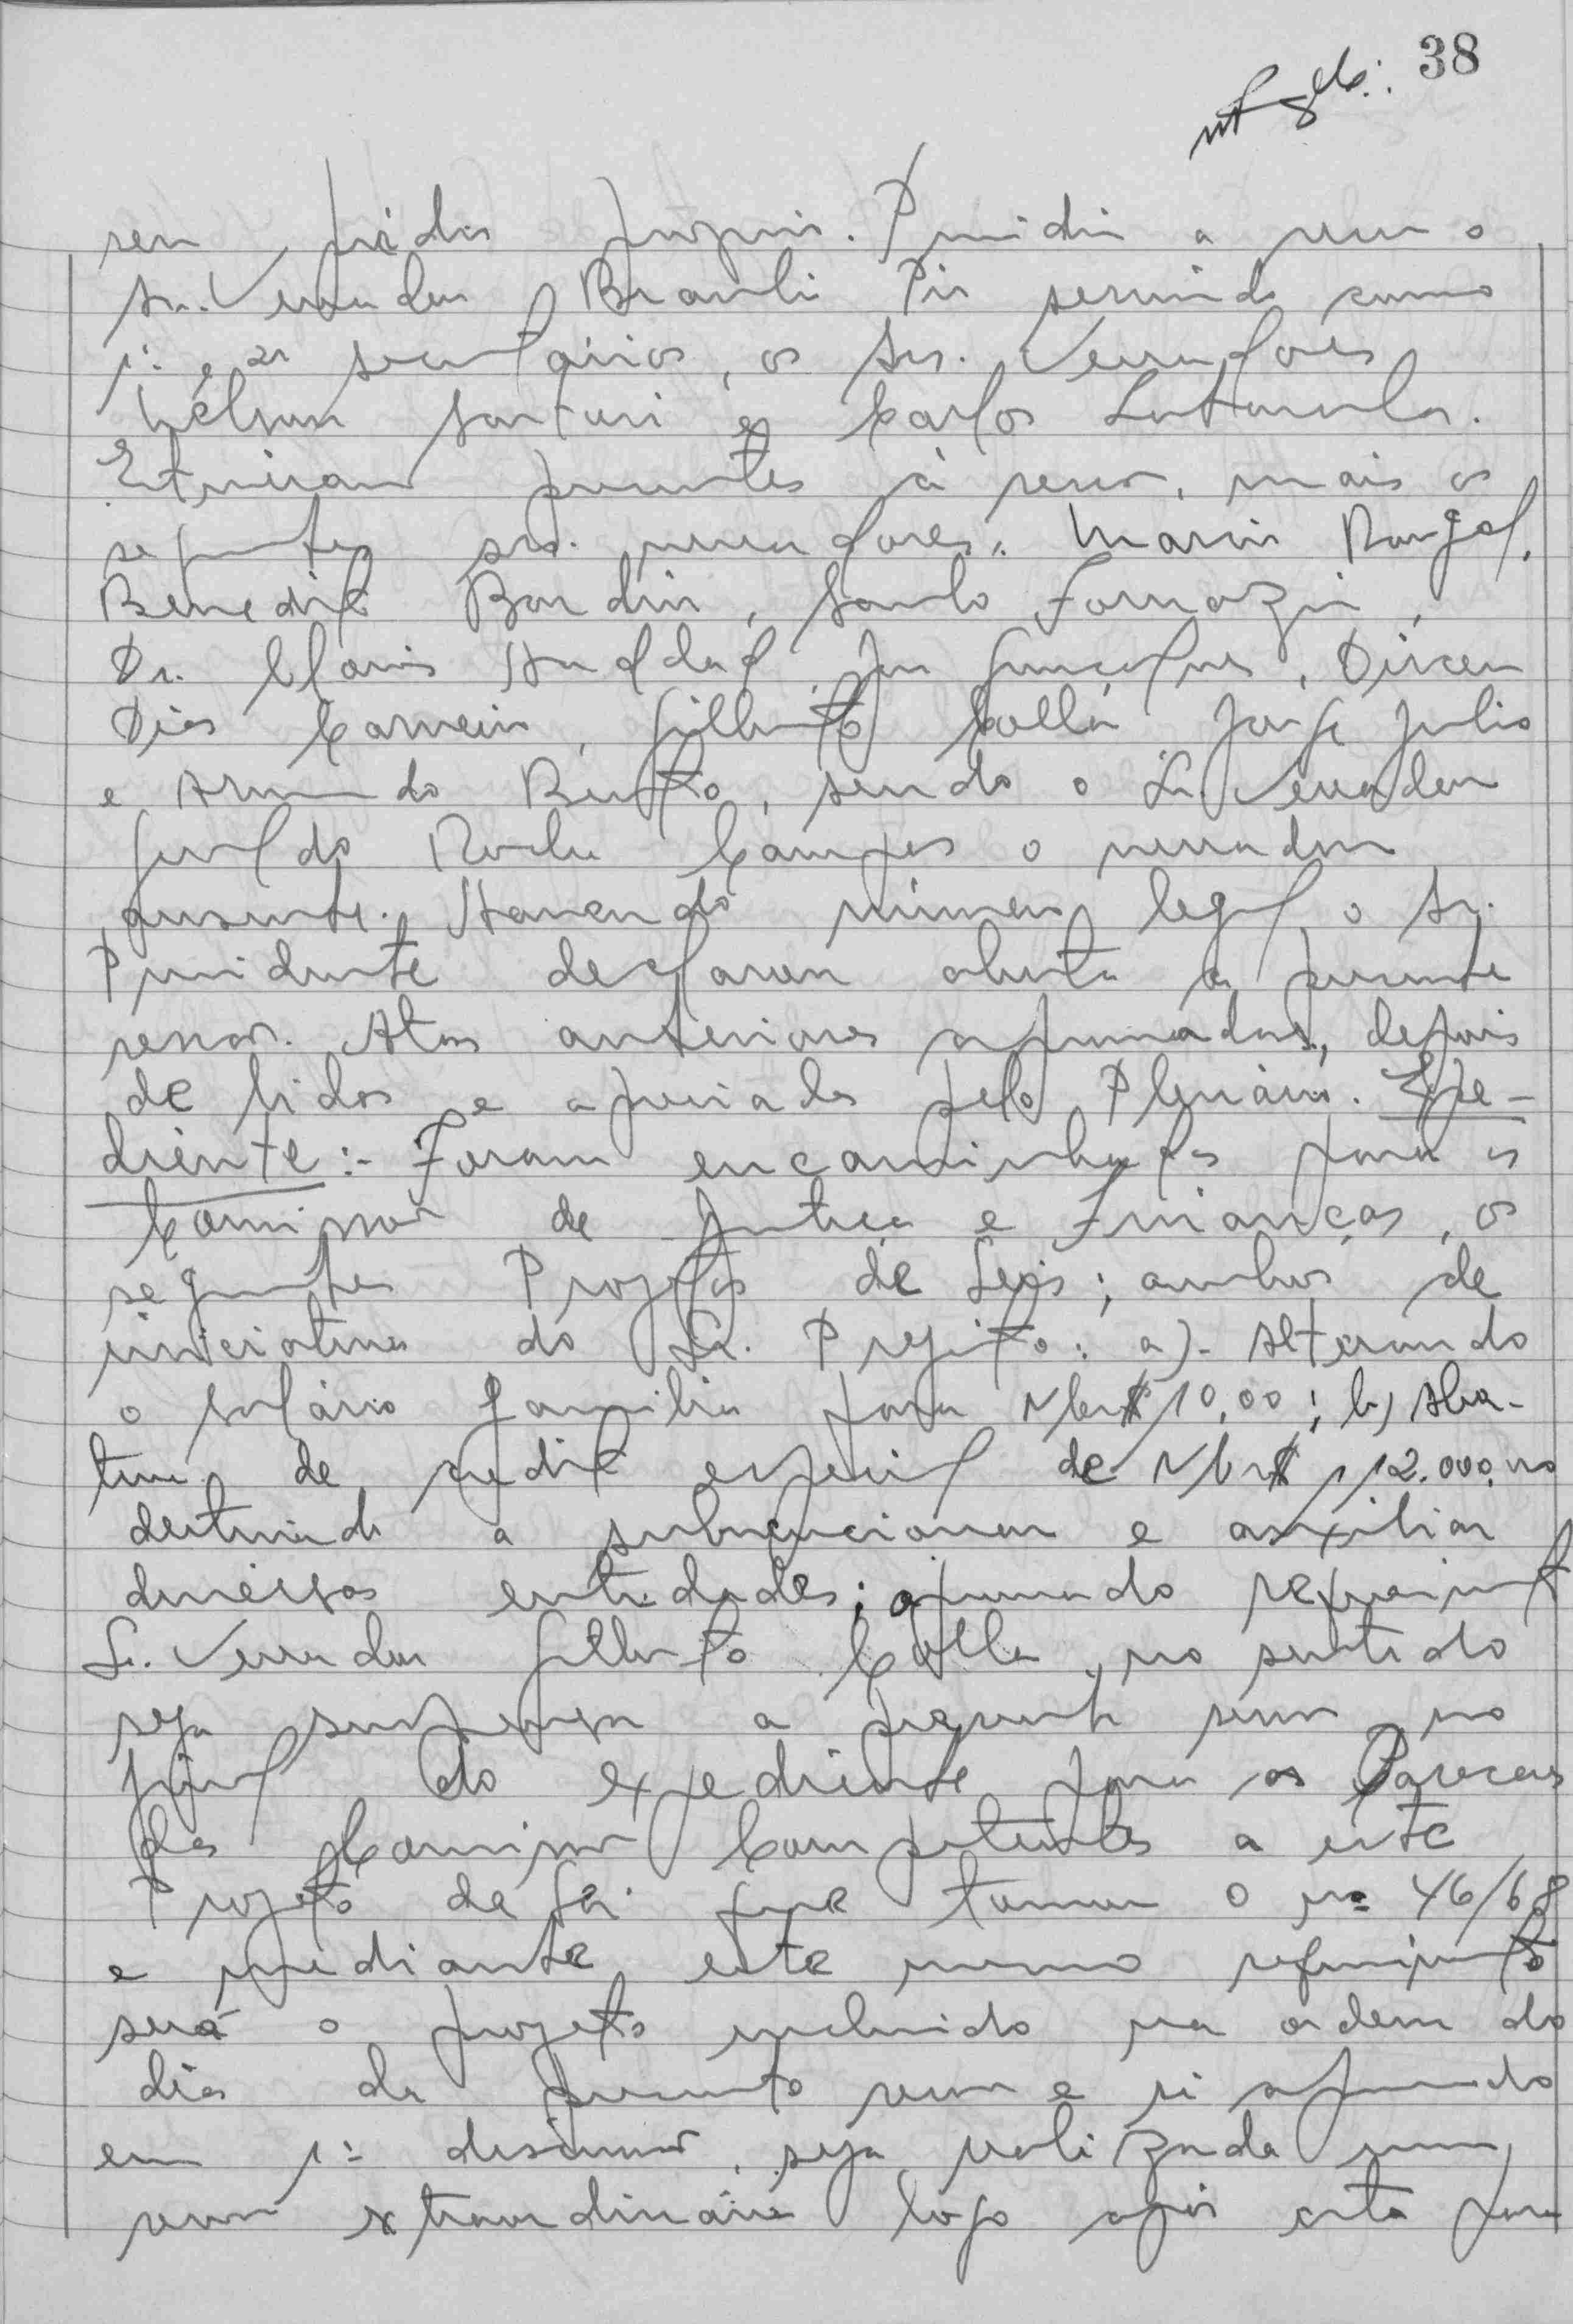 38
seu prédio proprio. Presidiu a sessão o
Sr. Vereador Braulio Pio servindo como
1º e 2º secretários, os Srs. Vereadores
Nélson Sartori e Carlos
Estiveram presentes à sessão, mais os
seguintes srs. vereadores: Mario Rangel,
Benedito Bordin, Santo Fornazin,
Dr. Clovis Haddad, José Gonçalves, Dirceu
Dias Carneiro, Gilberto Colla Jorge Julio
e Armando Bertto, sendo o Sr. Vereador
Geraldo Rocha Campos o vereador
ausente. Havendo número legal, o Sr.
Presidente declarou aberta a presente
sessão. Atas anteriores aprovadas, depois
de lidas e apreciadas pelo Plenário. Expe-
diente:- Foram encaminhados para as
Comissões de Justiça e Finanças, os
seguintes Projetos de Leis; ambos de
iniciativa do Sr. Prefeito: a)- Alterando
o salário familia para NCr$ 10,00; b) Aber-
tura de crédito especial de NCr$ 112.000,00
destinado a subvencionar e auxiliar
diversas entidades; aprovado requerimento
Sr. Vereador Gilberto Colla, no sentido
seja suspensa a presente sessão no
final do expediente para os Pareceres
das Comissões Competentes a este
Projeto de Lei que tomou o nº 46/68
e mediante este mesmo requerimento
será o projeto incluido na ordem do
dia da presente sessão e si aprovado
em 1ª discussão, seja realizada uma
sessão extraordinária logo após esta para